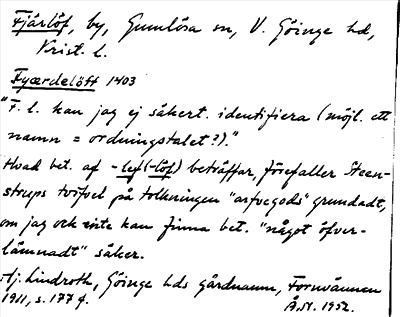 Fjärlöf, by, Gumlösa sn, V. Göinge hd,
Krist. l.
Fyærdelöff 1403
"F. l. kan jag ej säkert identifiera (möjl. ett
namn = ordningstalet?)."
Hvad bet. af -lef (-löf) beträffar, förefaller Steen-
strups tvifvel på tolkningen "arfvegods" grundadt,
om jag ock inte kan finna bet. "något öfver-
lämnadt" säker.
Hj. Lindroth, Göinge hds gårdnamn, Fornvännen
1911, s. 177 f.
Å.N. 1952.